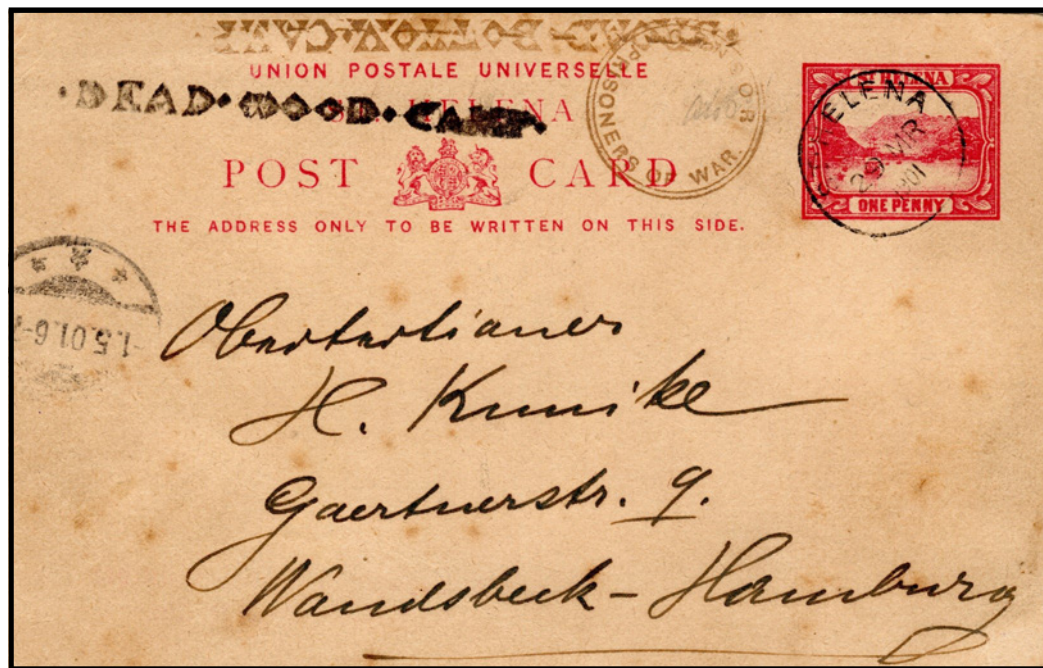 UNION POSTALE UNIVERSELLE
ST HELENA
·DEAD·WOOD·CAMP.
POST CARD
THE ADDRESS ONLY TO BE WRITTEN ON THIS SIDE.
PRISONERS OF WAR.
ST HELENA
ONE PENNY
ST HELENA
29 MR
1901
1.5.01.6-7
Obertertianer
H. Kunike
Gaertnerstr. 9.
Wandsbeck-Hamburg